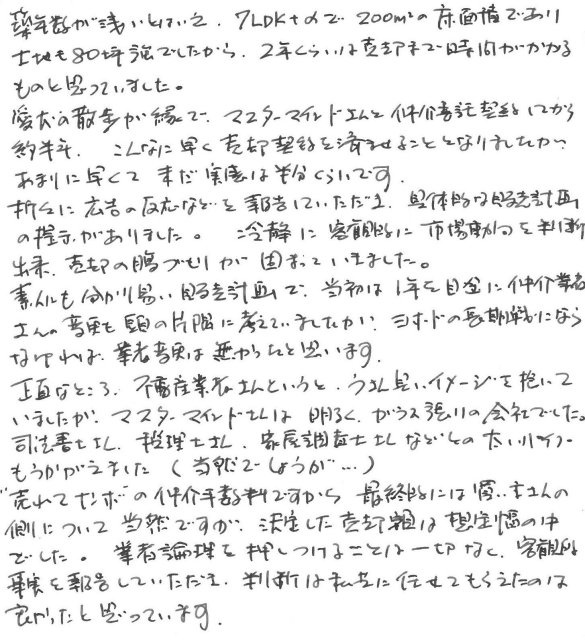 築年数が浅いとはいえ、7LDK+αで200m²の床面積であり
土地も80坪強でしたから、2年くらいは売却まで時間がかかる
ものと思っていました。
愛犬の散歩が縁で、マスターマインドさんと仲介委託契約してから
約半年、こんなに早く売却契約を済ませることとなりましたが、
あまりに早くてまだ実感は半分くらいです。
折々に広告の反応などを報告していただき、具体的な販売計画
の提示がありました。冷静に客観的に市場動向を判断
出来、売却の腹づもりが固まっていきました。
素人にも分かり易い販売計画で、当初は1年を目途に仲介業者
さんの変更も頭の片隅に考えていましたが、ヨボードの長期戦になら
なければ、業者変更は無かったと思います。
正直なところ、不動産業者さんというと、うさん臭いイメージを抱いて
いましたが、マスターマインドさんは明るく、ガラス張りの会社でした。
司法書士さん、税理士さん、家屋調査士さんなどとの太いパイプ
もうかがえました(当然でしょうが…)
"売れてナンボ"の仲介手数料ですから、最終的には買い主さんの
側について当然ですが、決定した売却額は想定幅の中
でした。業者論理を押しつけることは一切なく、客観的
事実を報告していただき、判断は私共に任せてもらえたのは
良かったと思っています。